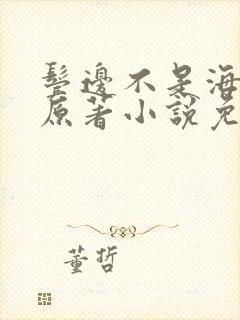 鬓邊不是海
原著小說免
董哲